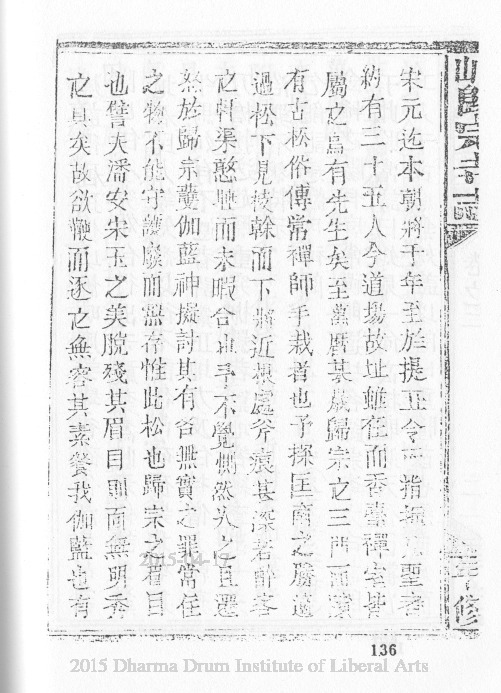 宋元迄本朝將千年至於提正令而指揮凡聖者
約有三十五人今道場故址雖在而香臺禪室皆
屬之烏有先生矣至萬曆某歲歸宗之三門而
有古松俗傳常禪師手栽者也予探匡南之勝過
過松下見枝榦而下將近根處斧痕甚深若醉客
之軒渠憨睡而未暇合也予不覺惻然久之且還
怒於歸宗業伽藍神擬討其有名無實之罪當在
之物不能守護廢而無存惟此松也歸宗之眉目
也譬夫潘安宋玉之美脫殘其眉目則面無明秀
之具矣故欲鞭而逐之無容其素餐我伽藍也有
136
2015-04-17
2015 Dharma Drum Institute of Liberal Arts